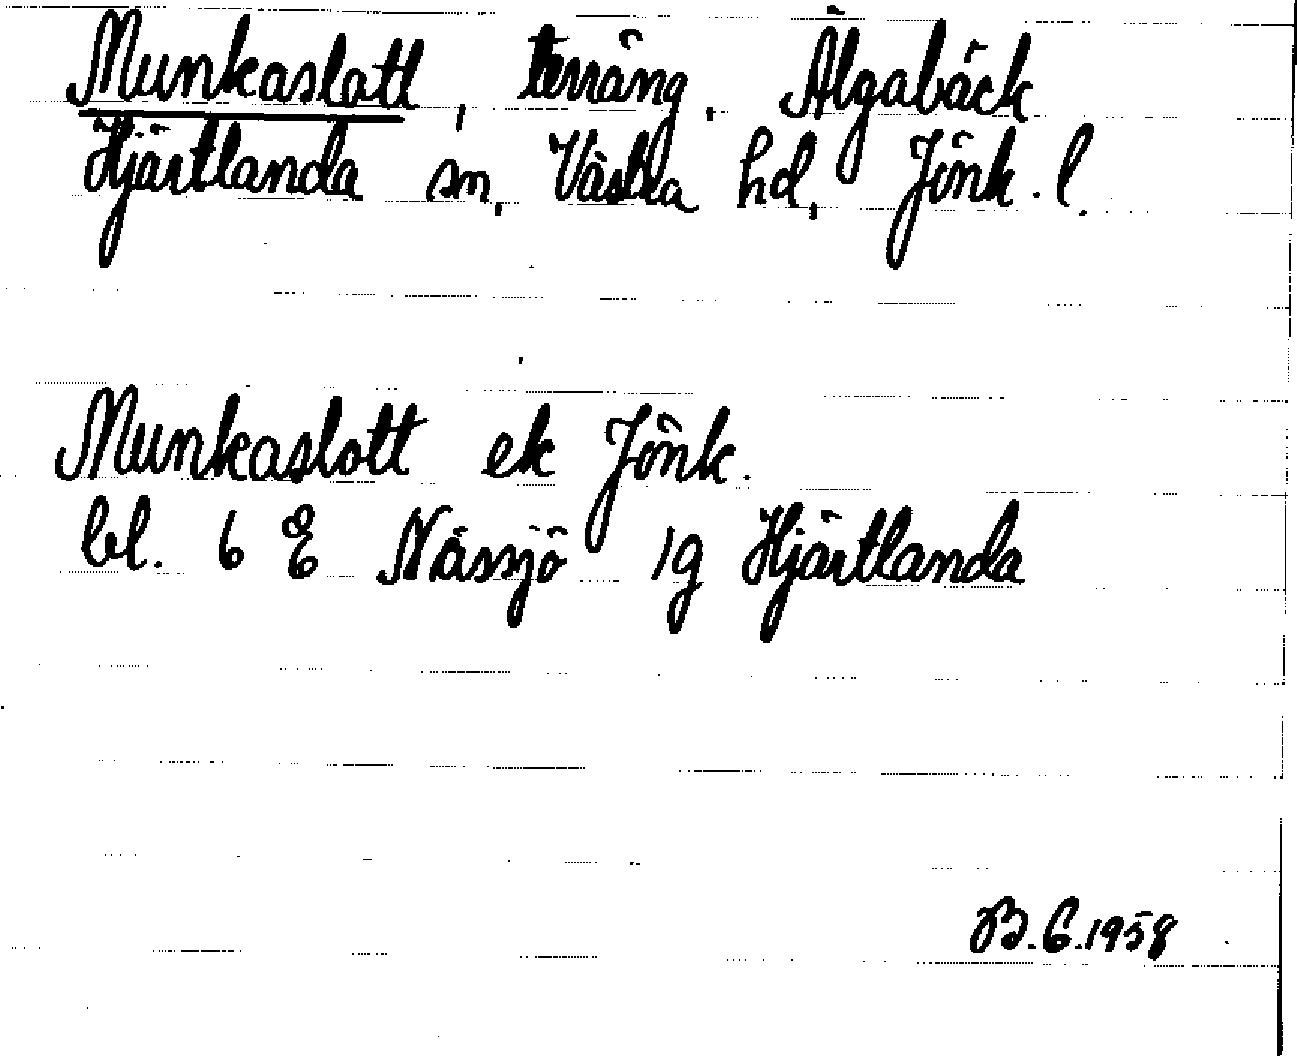 Munkaslott, terräng, Älgabäck
Hjärtlanda sn, Västra hd, Jönk. l.
Munkaslott ek Jönk.
bl. 6 E Nässjö 1g Hjärtlanda
B.G.1958